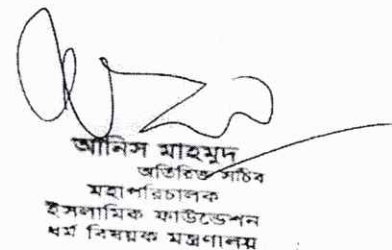 আনিস মাহমুদ
অতিরিক্ত সচিব
মহাপরিচালক
ইসলামিক ফাউন্ডেশন
ধর্ম বিষয়ক মন্ত্রণালয়